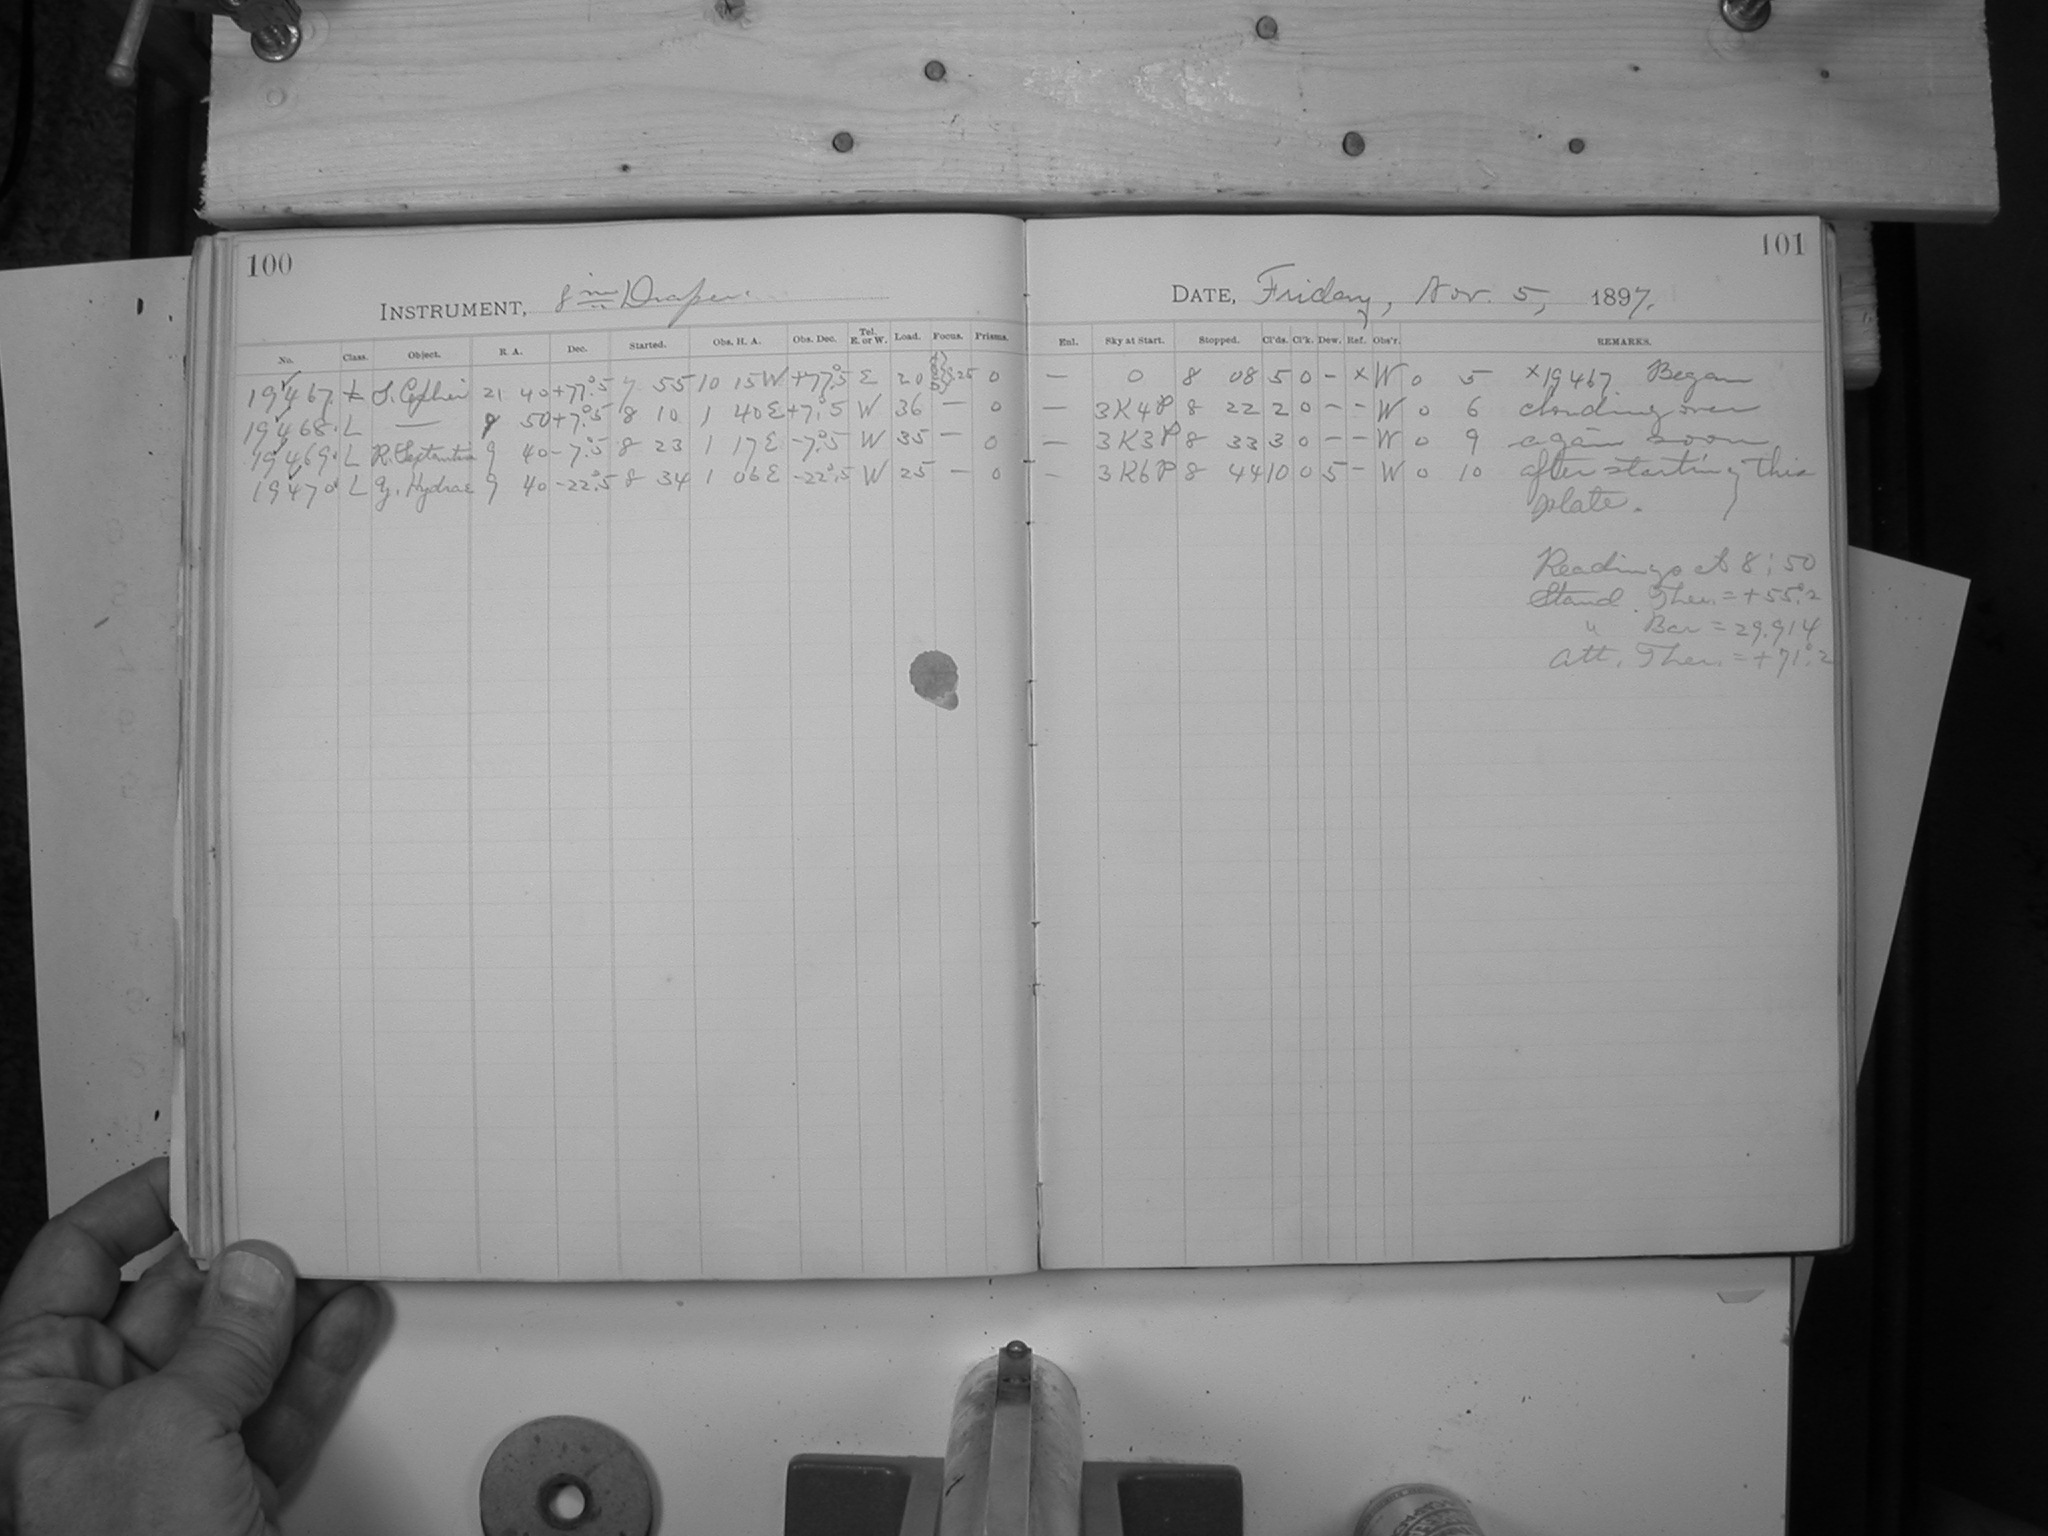 100
INSTRUMENT, 8 in Draper.
No. Class. Object. R. A. Dec. Started. Obs. H. A. Obs. Dec. Tel. E. or W. Load. Focus. Prisms.
19467. L S. Cephei 21 40 +77°.5 7 55 10 15 W +77°.5 E 20 9.25 0
19468. L — 9 50 +7°.5 8 10 1 40 E +7°.5 W 36 — 0
19469. L 9 40 -7°.5 8 23 1 17 E -7°.5 W 35 — 0
19470. L Y. Hydrae 9 40 -22°.5 8 34 1 06 E -22°.5 W 25 — 0
101
DATE, Friday, Nov. 5, 1897.
Enl. Sky at Start. Stopped. Cl'ds. Cl'k. Dew. Ref. Obs'r. REMARKS.
— 0 8 08 5 0 - x W 0 5 x19467 Began
— 3K4P 8 22 2 0 - - W 0 6 clouding over
— 3K3P 8 33 3 0 - - W 0 9 again soon
— 3K6P 8 44 10 0 5 - W 0 10 after starting this
plate.
Readings at 8:50
Stand. Ther. = +55°.2
" Bar = 29.914
Att. Ther. = +71°.2